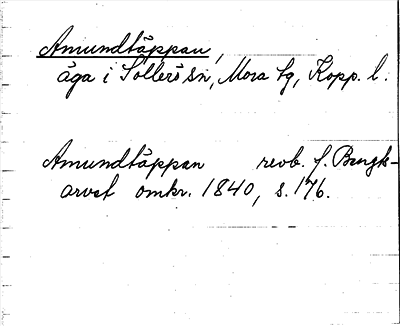 Amundtäppan,
äga i Sollerö sn, Mora tg, Kopp. l.
Amundtäppan revb. f. Bengts-
arvet omkr. 1840, s. 176.